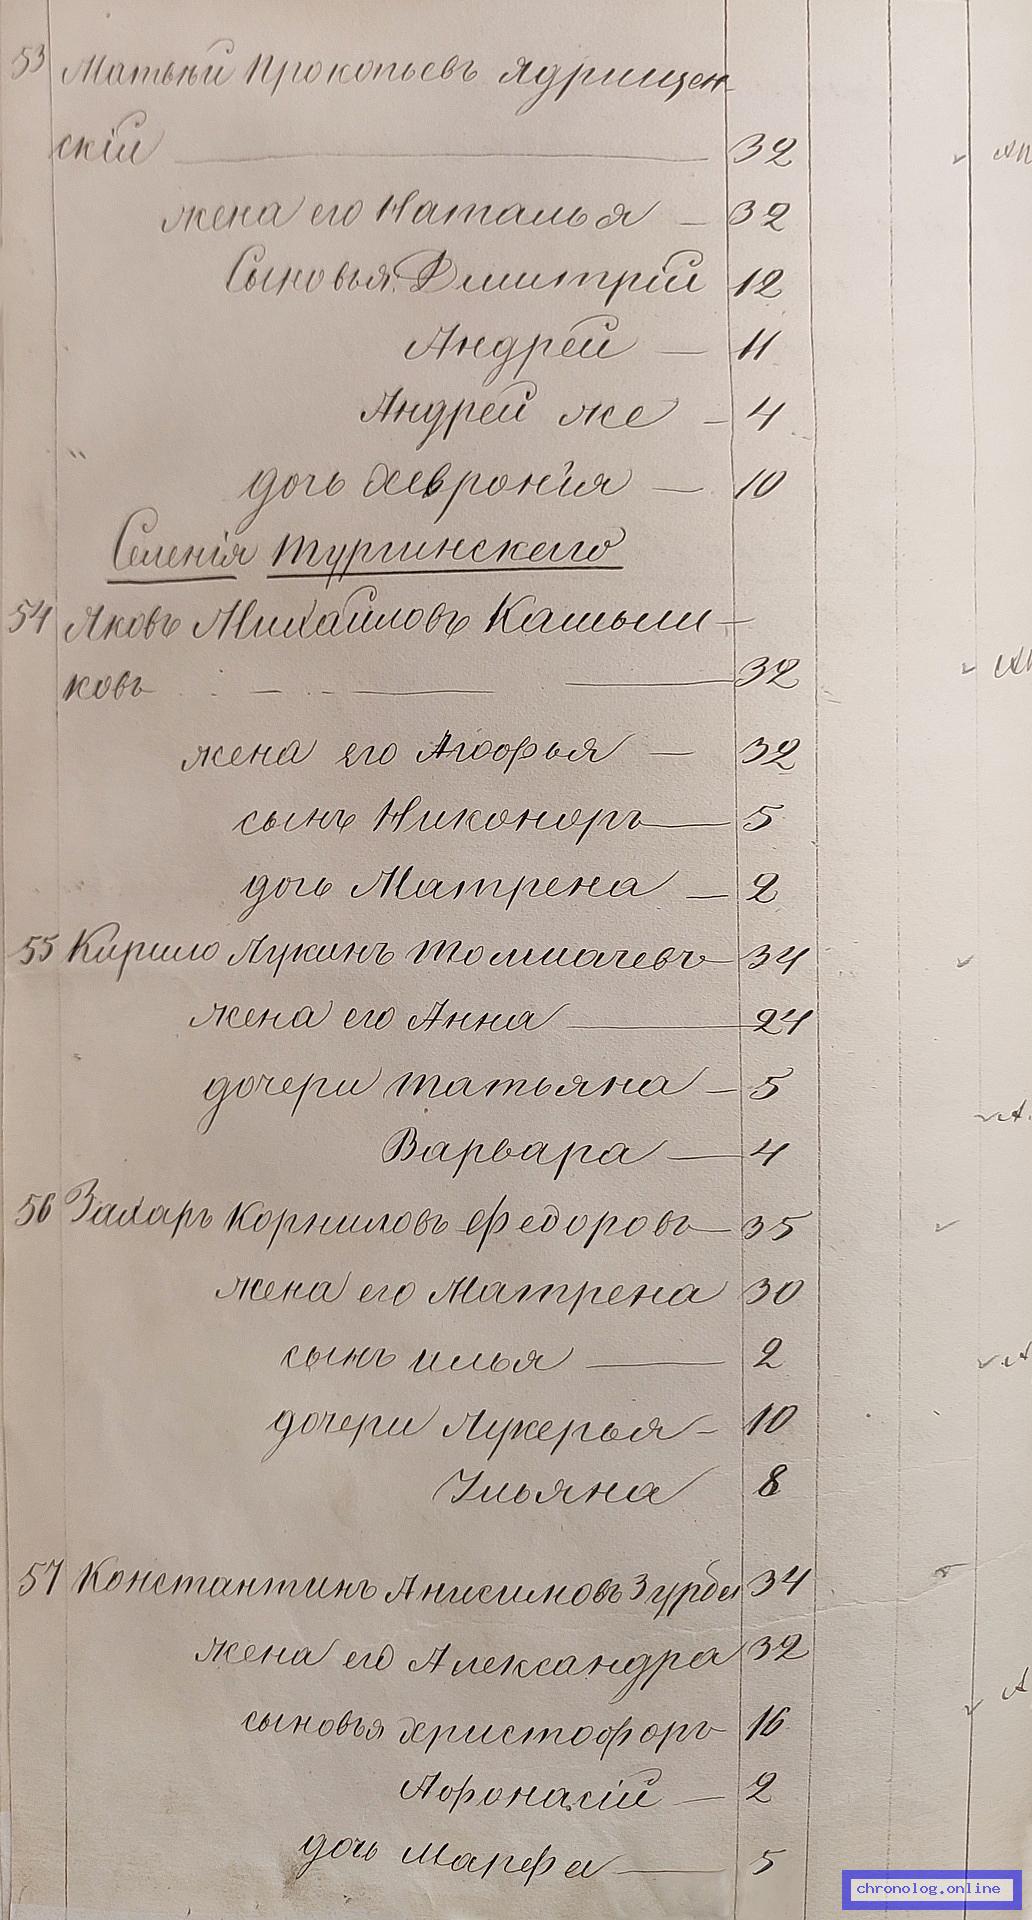 53 Матвѣй Прокопьевъ Ядрищен-
скій — 32
жена его Наталья — 32
Сыновья Дмитрій 12
Андрей — 11
Андрей же — 4
дочь Хевронія — 10
Селенія Тургинскаго
54 Яковъ Михайловъ Камыни-
ковъ — 32
жена его Агофья — 32
сынъ Никоноръ — 5
дочь Матрена — 2
55 Кирило Лукинъ Толмачевъ — 34
жена его Анна — 24
дочери Татьяна — 5
Варвара — 4
56 Захаръ Корниловъ Федоровъ — 35
жена его Матрена 30
сынъ Илья — 2
дочери Лукерья — 10
Ульяна 8
57 Константинъ Анисимовъ 34
жена его Александра 32
сыновья Христофоръ 16
Афонасій — 2
дочь Марфа — 5
chronolog.online